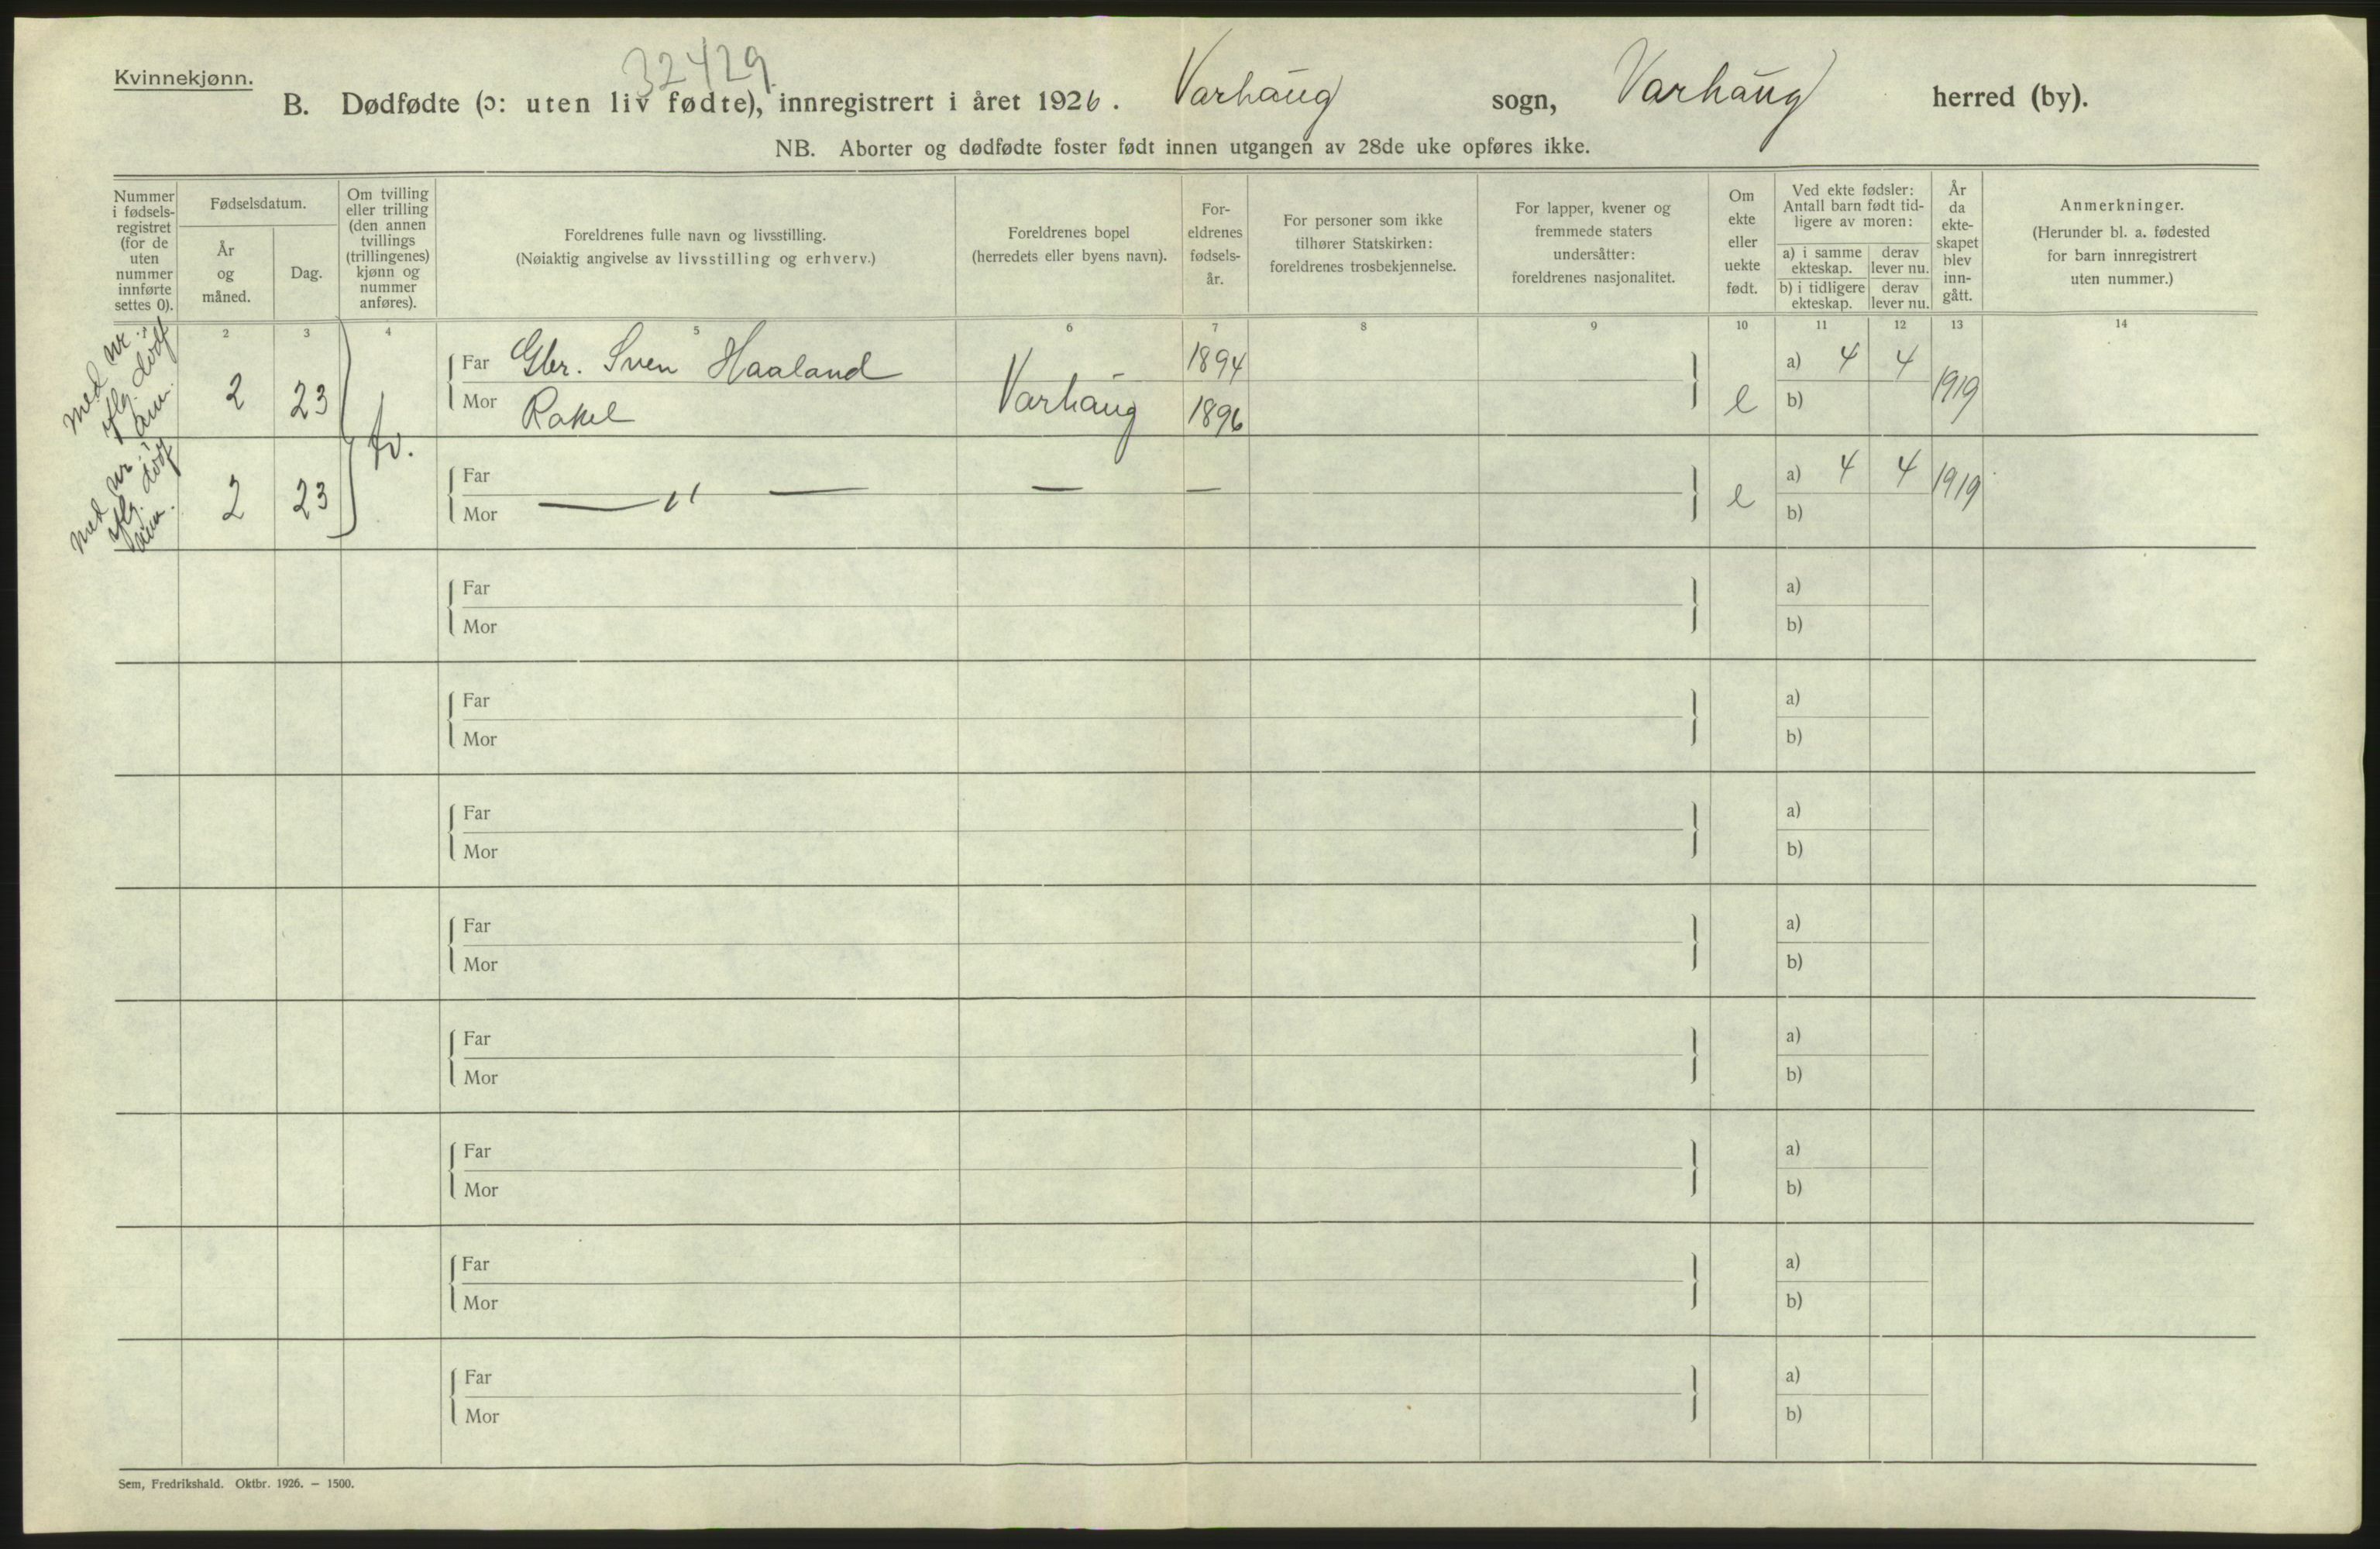 Kvinnekjønn.
32429
B. Dødfødte (ɔ: uten liv fødte), innregistrert i året 1926. Varhaug sogn, Varhaug herred (by).
NB. Aborter og dødfødte foster født innen utgangen av 28de uke opføres ikke.
Nummer i fødsels- registret (for de uten nummer innførte settes 0).
Fødselsdatum.
År og måned.
Dag.
Om tvilling eller trilling (den annen tvillings (trillingenes) kjønn og nummer anføres).
Foreldrenes fulle navn og livsstilling.
(Nøiaktig angivelse av livsstilling og erhverv.)
Foreldrenes bopel
(herredets eller byens navn).
For- eldrenes fødsels- år.
For personer som ikke tilhører Statskirken: foreldrenes trosbekjennelse.
For lapper, kvener og fremmede staters undersåtter: foreldrenes nasjonalitet.
Om ekte eller uekte født.
Ved ekte fødsler: Antall barn født tid- ligere av moren:
a) i samme ekteskap. derav lever nu.
b) i tidligere ekteskap. derav lever nu.
År da ekte- skapet blev inn- gått.
Anmerkninger.
(Herunder bl. a. fødested for barn innregistrert uten nummer.)
1 2 3 4 5 6 7 8 9 10 11 12 13 14
med nr.
2 23 tv. Far Gbr. Sven Haaland Varhaug 1894 e a) 4 4 1919
Mor Rakel 1896 b)
med nr.
2 23 Far — " — — — e a) 4 4 1919
Mor b)
Far a)
Mor b)
Far a)
Mor b)
Far a)
Mor b)
Far a)
Mor b)
Far a)
Mor b)
Far a)
Mor b)
Far a)
Mor b)
Far a)
Mor b)
Sem, Fredrikshald. Oktbr. 1926. — 1500.